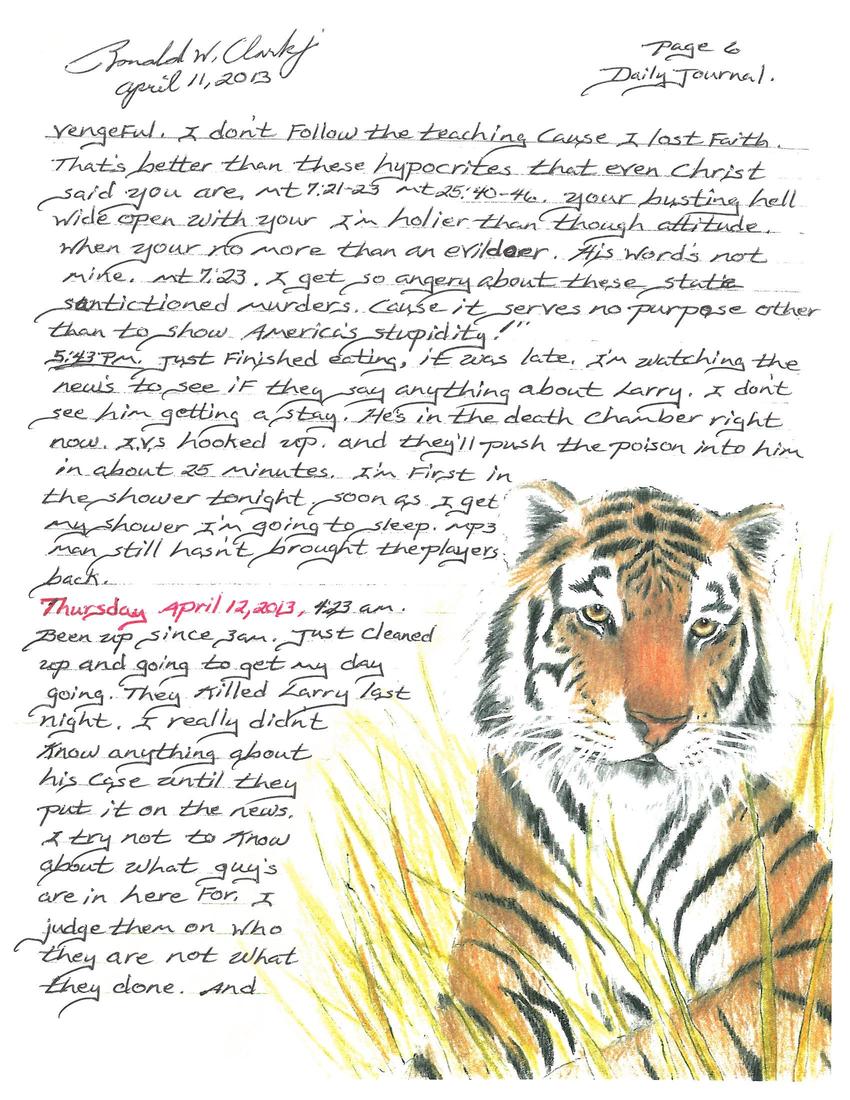 Ronald W. Clark jr
April 11, 2013
Page 6
Daily Journal.
vengeFul. I don't Follow the teaching Cause I lost Faith.
That's better than these hypocrites that even Christ
said you are, mt 7:21-23 mt 25:40-46. your busting hell
wide open with your I'm holier than though attitude.
When your no more than an evildoer. His word's not
mine. mt 7:23. I get so angery about these state
santictioned murders. Cause it serves no purpose other
than to show America's stupidity!"
5:43 PM. Just Finished eating, it was late. I'm watching the
new's to see iF they say anything about Larry. I don't
see him getting a stay. He's in the death Chamber right
now. I.V.s hooked up. and they'll push the poison into him
in about 25 minutes. I'm First in
the shower tonight. soon as I get
my shower I'm going to sleep. MP3
man still hasn't brought the players
back.
Thursday April 12, 2013, 4:23 am.
Been up since 3am. Just Cleaned
up and going to get my day
going. They Killed Larry last
night. I really didn't
Know anything about
his Case until they
put it on the news.
I try not to Know
about what guy's
are in here For. I
judge them on who
they are not what
they done. And